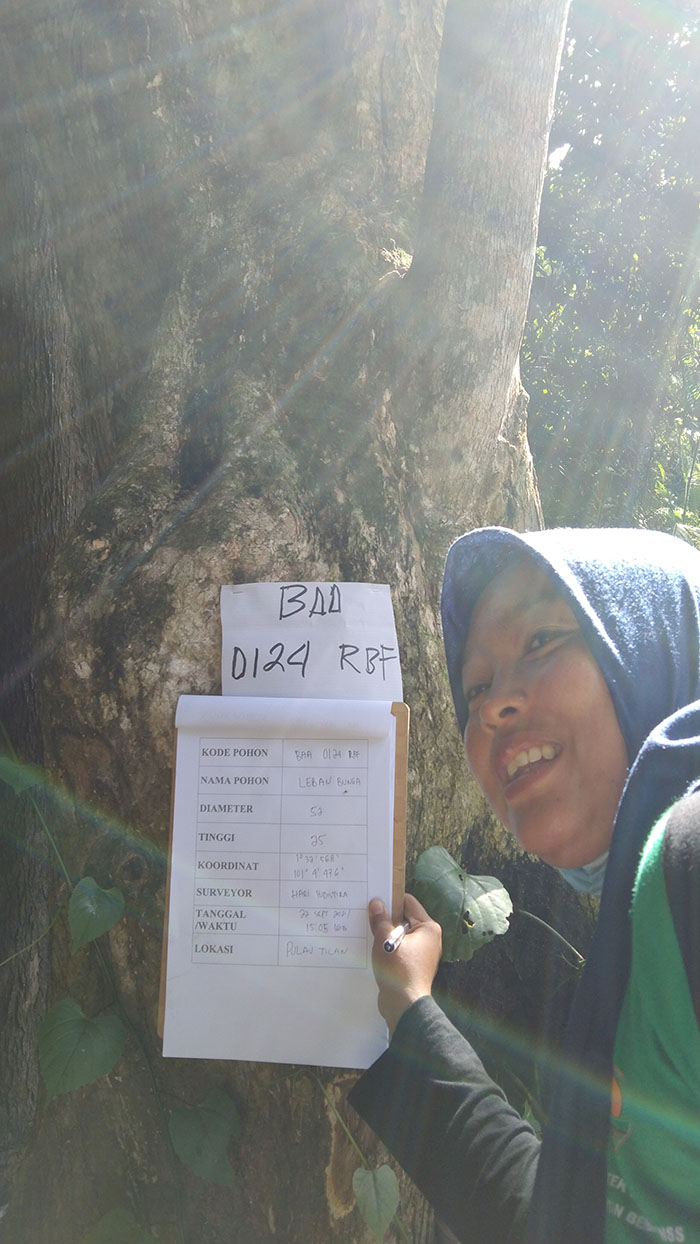 BAA
0124 RBF
KODE POHON BAA 0124 RBF
NAMA POHON LEBAN BUNGA
DIAMETER 52
TINGGI 25
KOORDINAT
101° 4' 476"
SURVEYOR HARI YUDHTIRA
TANGGAL 22 SEPT 2021
/WAKTU 15:05 WIB
LOKASI PULAU TILAN